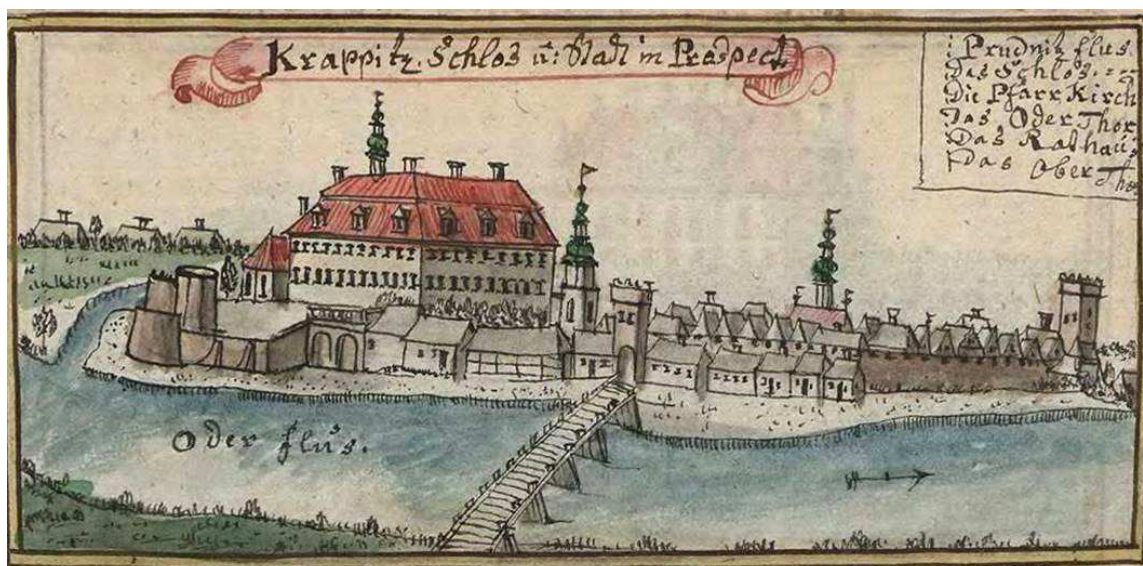 Krappitz. Schlos u: Stadt in Prospect
Prudnitz flus
das Schlos.
Die Pfarr Kirch
Das Oder Thor
Das Rathaus
Das Ober Tho
Oder flus.